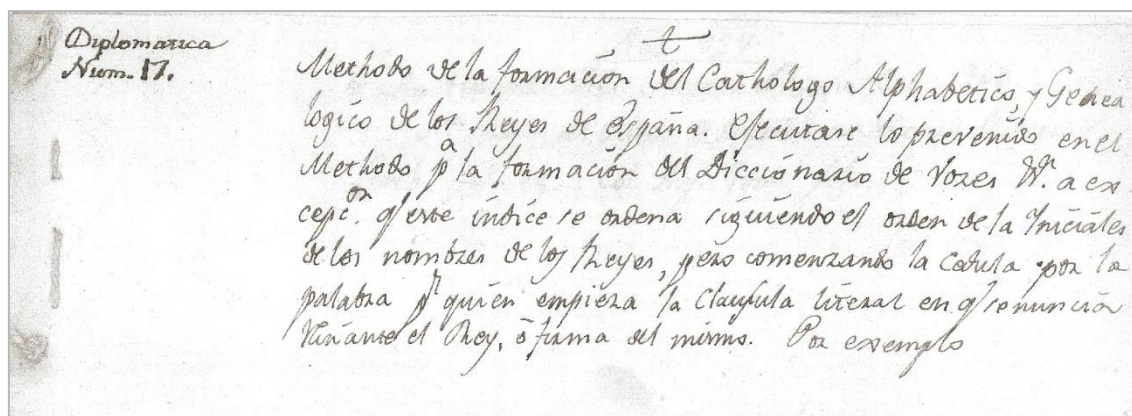 Diplomatica
Num. 17.
Methodo de la formacion del Cathologo Alphabetico, y Genea
logico de los Reyes de España. Efecutase lo prevenido en el
Methodo pª la formacion del Diccionario de Vozes &ª. a ex
cepcºⁿ. q̃ este indice se ordena siguiendo el orden de la Iniciales
de los nombres de los Reyes, pero comenzando la cedula por la
palabra pʳ quien empieza la Clausula literal en q̃ se nuncia
Reinante el Rey, ô firma del mismo. Por exemplo